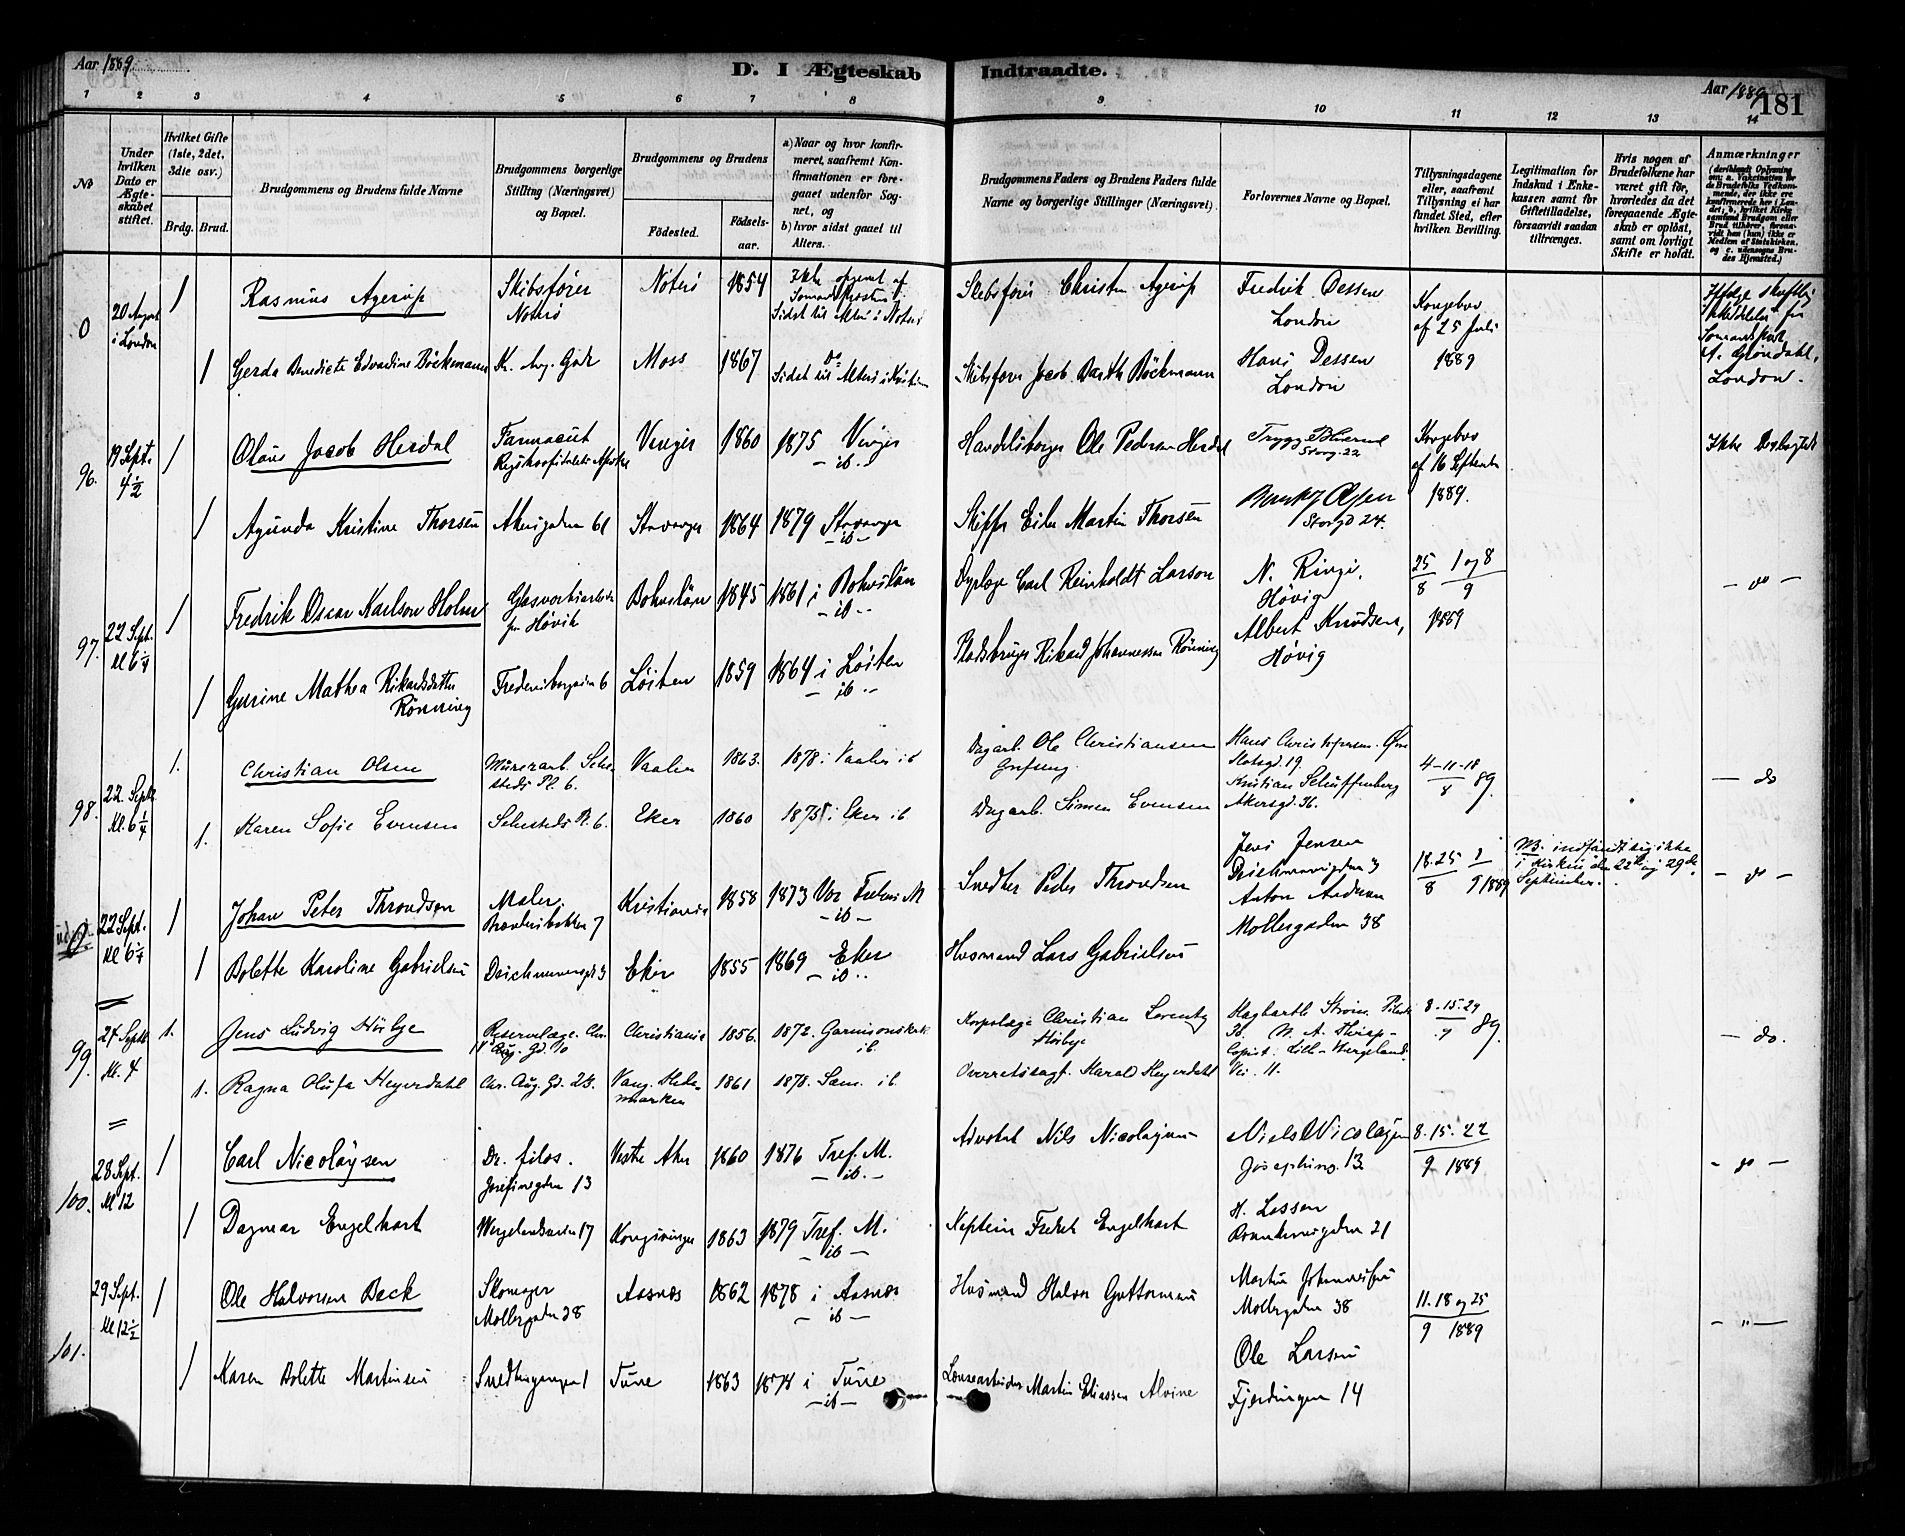 Aar 1889
D. I Ægteskab Indtraadte.
Aar 1889
181
1 2 3 4 5 6 7 8 9 10 11 12 13 14
No
Under hvilken Dato er Ægteskabet stiftet.
Hvilket Gifte (1ste, 2det, 3die osv.)
Brdg. Brud.
Brudgommens og Brudens fulde Navne
Brudgommens borgerlige Stilling (Næringsvei) og Bopæl.
Brudgommens og Brudens
Fødested.
Fødselsaar.
a) Naar og hvor konfirmeret, saafremt Konfirmationen er foregaaet udenfor Sognet, og
b) hvor sidst gaaet til Alters.
Brudgommens Faders og Brudens Faders fulde Navne og borgerlige Stillinger (Næringsvei).
Forlovernes Navne og Bopæl.
Tillysningsdagene eller, saafremt Tillysning ei har fundet Sted, efter hvilken Bevilling.
Legitimation for Indskud i Enkekassen samt for Giftetilladelse, forsaavidt saadan tiltrænges.
Hvis nogen af Brudefolkene har været gift før, hvorledes da det foregaaende Ægteskab er opløst, samt om lovligt Skifte er holdt.
Anmærkninger
0
20 August i London
1
Rasmus Agerup
Skibsfører
Noterö
Noterö
1854
Sidst til Alters i Noterö
Skibsfører Christen Agerup
Fredrik Dessen
London
Kongebrev
af 25 Juli
1889
1
Gerda Benedicte Edvardine Böckmann
Moss
1867
Do
Skibsfører Jacob Böckmann
Hans Dessen
London
London.
96.
19 Sept.
4 1/2
1
Olaus Jacob Herdal
Farmaceut
Vinger
1860
1875 Vinger
— ib —
Handelsborger Ole Pedersen Herdal
Storg. 22
Kongebrev
af 16 September
1889.
Ikke
1
Agunda Kristine Thorsen
Akersgaden 61
Stavanger
1864
1879 Stavanger
— ib —
Skipper Martin Thorsen
Storgd 24.
97.
22 Sept.
kl 6 1/4
1
Fredrik Oscar Karlson Holm
Høvik
Bohuslän
1845
1861 i Bohuslän
— ib —
Carl Reinholdt Larson
N.
Høvig
25 1 og 8
8 9
1889
— do —
1
Gurine Mathea Rikardsdatter
Rönning
Löiten
1859
1864 i Löiten
— ib —
Pladsbruger Rikard Johannessen Rönning
Albert Knudsen,
Høvig
98.
22. Septbr
kl. 6 1/4
1.
Christian Olsen
Murerarb. Sehesteds Pl. 6.
Vaaler
1863.
1878 i Vaaler ib
Dagarb. Ole Christiansen
Grefseng.
Slotsgd. 19.
4-11-18
8 89.
— do
1.
Karen Sofie Evensen
Sehesteds Pl. 6.
Eker
1860
1875 i Eker ib
Dagarb. Simen Evensen
Kristian Schuffenberg
Akersgd. 36.
0
22 Sept.
kl 6 1/4
1
Johan Peter Throndsen
Maler.
Kristiania
1858
1873 Vor Frelsers M
— ib —
Snedker Peder Throndsen
Jens Jensen
Deichmannsgden 3
18.25 1
8 9 1889
NB. indfandt sig ikke
i Kirken den 22de og 29de
September.
— do —
1
Bolette Karoline Gabrielsen
Deichmannsgd 3
Eker
1855
1869 Eker
— ib —
Husmand Lars Gabrielsen
Anton Andersen
Møllergaden 38
99.
27 Septbr
Kl. 4
1.
Jens Ludvig Hörbye
Reservelæge. Chr.
Aug. Gd. 10
Christiania
1856.
1872. Garnisonskirk
ib.
Korpslæge Christian Lorentz
Hörbye
8-15-29
9 89.
— do.
1.
Ragna Olufa Heyerdahl
Chr. Aug. Gd. 23.
Vang. Hedemarken
1861
1878. Sam. ib
Overretssagf. Harald Heyerdahl
Vei. 11.
100.
28 Sept.
kl 12
1
Carl Nicolaysen
Dr. filos.
Josefinegden 13
Vestre Aker
1860
1876 Tref. M.
— ib. —
Advokat Nils Nicolaysen
Niels Nicolaysen
Josephineg. 13
8.15.22
9 1889
— do —
1
Dagmar Engelhart
Wergelandsveien 17
Kongsvinger
1863
1879 Tref. M.
— ib —
Kaptein Fredrik Engelhart
H. Lassen
101.
29 Sept.
kl 12 1/2
1
Ole Halvorsen Beck
Skomager
Møllergaden 38
Aasnæs
1862
1878 i Aasnæs
— ib —
Husmand Halvor Guttormsen
Martin Johannessen
Møllergaden 38
11.18 og 25
9 1889
— " —
1
Karen Bolette Martinsen
Tune
1863
1878 i Tune
— ib —
Martin Eliassen Alvine
Ole Larsen
Fjerdingen 14